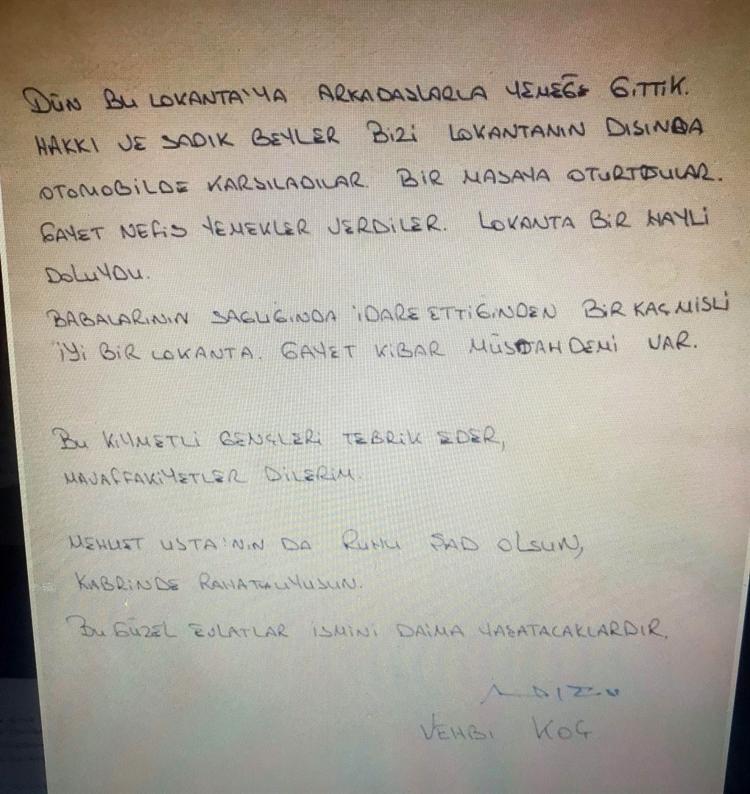 DÜN BU LOKANTA'YA ARKADAŞLARLA YEMEĞE GİTTİK.
HAKKI VE SADIK BEYLER BİZİ LOKANTANIN DIŞINDA
OTOMOBİLDE KARŞILADILAR. BİR MASAYA OTURTDULAR.
GAYET NEFİS YEMEKLER VERDİLER. LOKANTA BİR HAYLİ
DOLUYDU.
BABALARININ SAĞLIĞINDA İDARE ETTİĞİNDEN BİR KAÇ MİSLİ
İYİ BİR LOKANTA. GAYET KİBAR MÜSTAHDEMİ VAR.
BU KIYMETLİ GENÇLERİ TEBRİK EDER,
MUVAFFAKİYETLER DİLERİM.
MEHMET USTA'NIN DA RUHU ŞAD OLSUN,
KABRİNDE RAHAT UYUSUN.
BU GÜZEL EVLATLAR İSMİNİ DAİMA YAŞATACAKLARDIR.
VEHBİ KOÇ